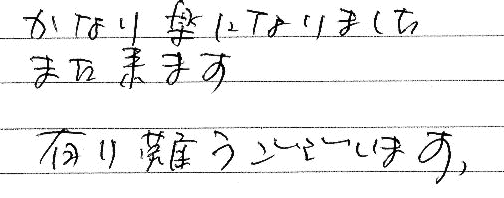 かなり楽になりました
また来ます
有り難うございます,